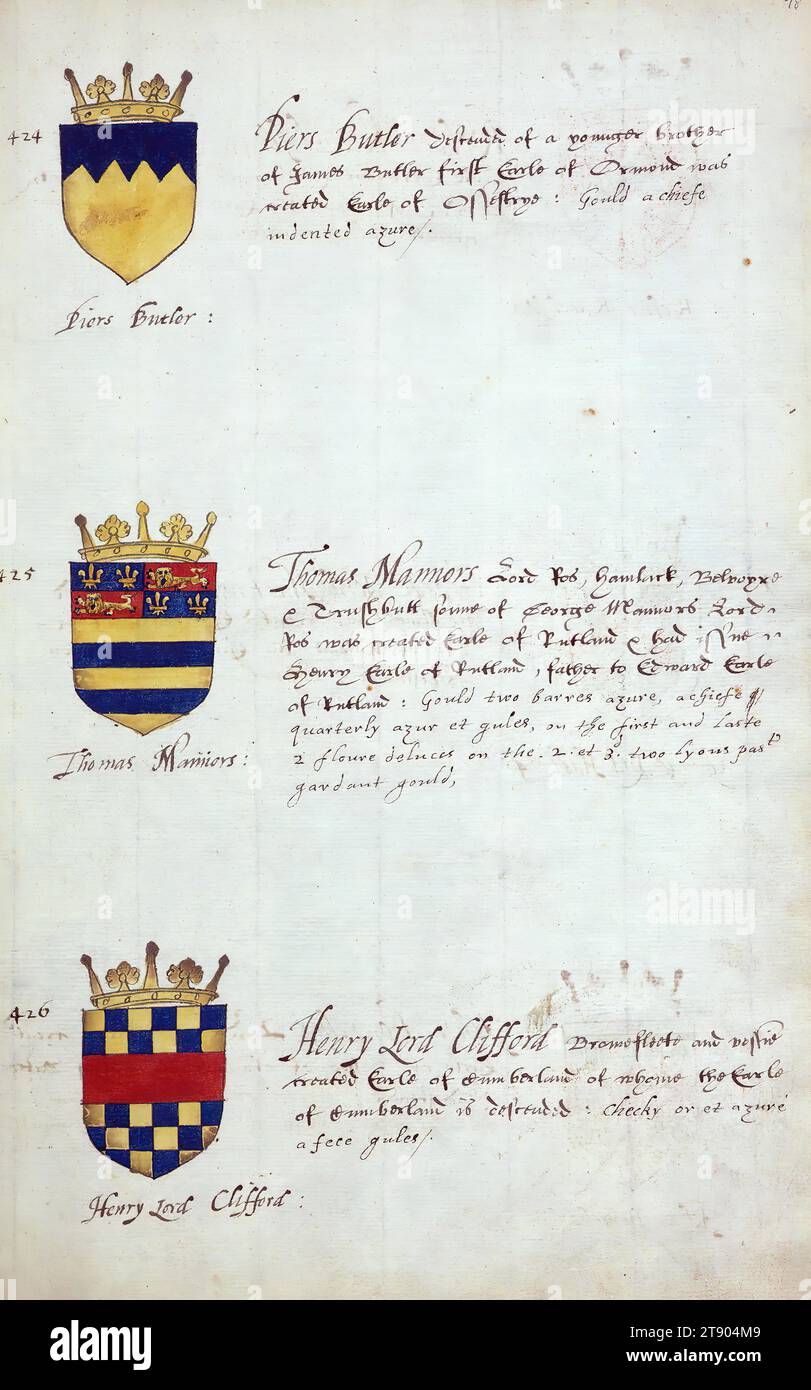 424
Piers Butler descended of a younger brother
of James Butler first Earle of Ormond was
created Earle of Osserye : Gould a chiefe
indented azure/.
Piers Butler :
425
Thomas Mannors Lord Ros, Hamlack, Belvoyre
& Trushbutt sonne of George Mannors Lord
Ros was created Earle of Rutland & had issue
Henry Earle of Rutland, father to Edward Earle
of Rutland : Gould two barres azure, a chiefe
quarterly azur et gules, on the first and laste
2 floure deluces on the .2. et 3. two lyons past
gardant gould,
Thomas Mañors :
426
Henry Lord Clifford Bromefleete and vessie
created Earle of Cumberland of whome the Earle
of Cumberland is descended : Checky or et azure
a fece gules/.
Henry Lord Clifford :
alamy
alamy
alamy
alamy
Image ID: 2T904M9
www.alamy.com